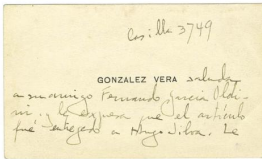 Casilla 3749
GONZALEZ VERA saluda
a su amigo Fernando García Oldi
ni. Le expresa que el artículo
fué entregado a Hugo Silva. Le